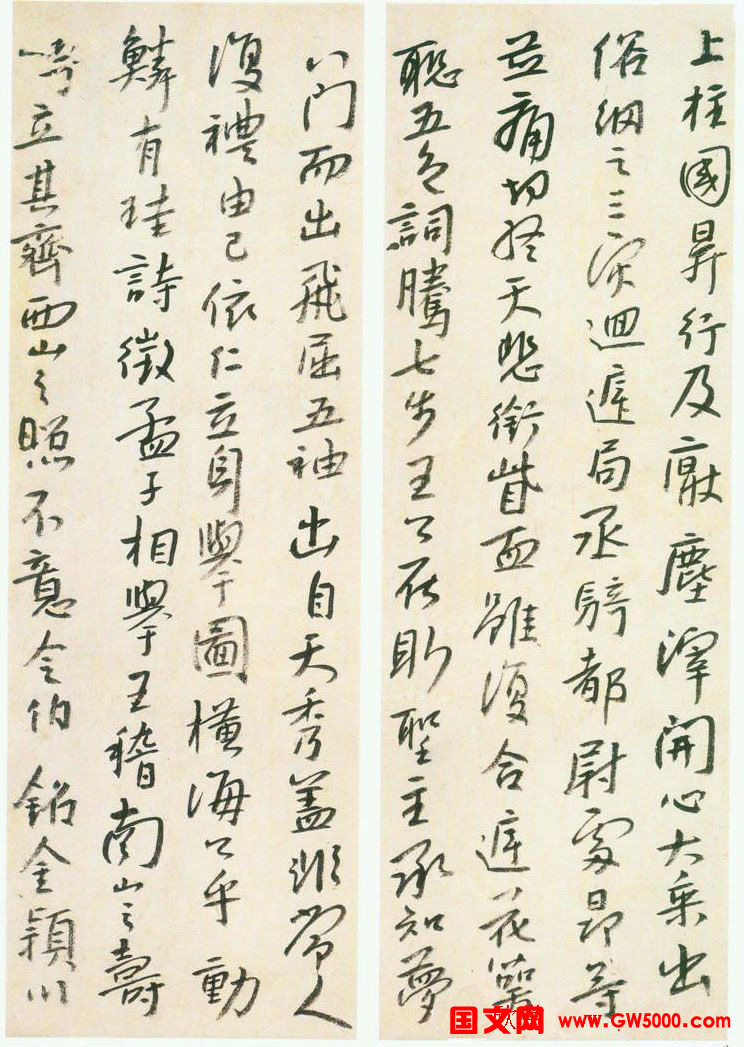 上柱國昇行及獻塵澤開心大乘出
俗網之三演迴遲局丞騎都尉處昂等
並痛切終天悲銜眥面雖復合遲花
聰五色詞騰七步王公取則聖主承知夢
門而出飛屈五袖出自天秀蓋非常人
復禮由己依仁立身舉圖橫海公乎動
鱗有珪詩徵孟子相舉王稽南山之壽
嵜立其齊西山之照不意合伯銘金穎川
国文网 www.GW5000.com